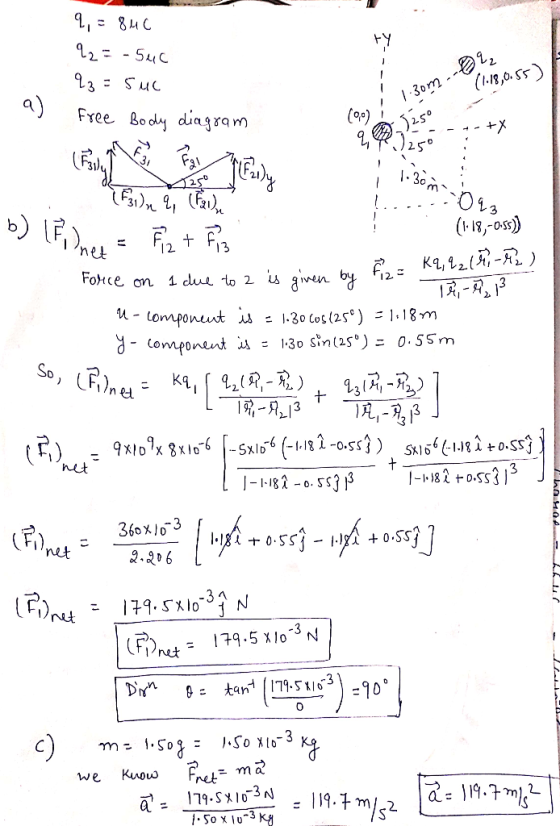 q₁ = 8μC
q₂ = -5μC
q₃ = 5μC
+y
q₂
(1.18, 0.55)
1.30m
(0,0)
q₁
25°
25°
+x
1.30m
q₃
(1.18, -0.55))
a) Free Body diagram
(F⃗₃₁)y F⃗₃₁ F⃗₂₁ (F⃗₂₁)y
25°
(F⃗₃₁)x q₁ (F⃗₂₁)x
b) (F⃗₁)net = F⃗₁₂ + F⃗₁₃
Force on 1 due to 2 is given by F⃗₁₂ = Kq₁q₂(r⃗₁-r⃗₂) / |r⃗₁-r⃗₂|³
x-component is = 1.30 cos(25°) = 1.18m
y-component is = 1.30 sin(25°) = 0.55m
So, (F⃗₁)net = Kq₁ [ q₂(r⃗₁-r⃗₂) / |r⃗₁-r⃗₂|³ + q₃(r⃗₁-r⃗₃) / |r⃗₁-r⃗₃|³ ]
(F⃗₁)net = 9×10⁹×8×10⁻⁶ [ -5×10⁻⁶(-1.18î-0.55ĵ) / |-1.18î-0.55ĵ|³ + 5×10⁻⁶(-1.18î+0.55ĵ) / |-1.18î+0.55ĵ|³ ]
(F⃗₁)net = 360×10⁻³ / 2.206 [ 1.18î + 0.55ĵ - 1.18î + 0.55ĵ ]
(F⃗₁)net = 179.5×10⁻³ ĵ N
(F⃗₁)net = 179.5×10⁻³ N
Dirⁿ θ = tan⁻¹ (179.5×10⁻³ / 0) = 90°
c) m = 1.50g = 1.50×10⁻³ kg
we know F⃗net = ma⃗
a⃗ = 179.5×10⁻³ N / 1.50×10⁻³ kg = 119.7 m/s²
a⃗ = 119.7 m/s²